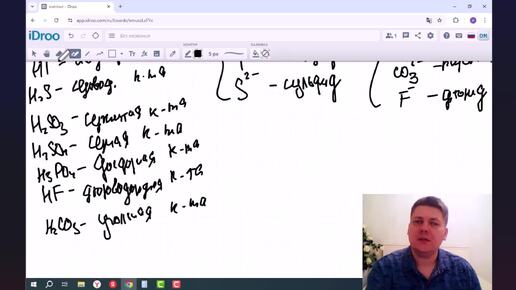 untitled - iDroo
app.idroo.com/ru/boards/
iDroo
БЕЗ НАЗВАНИЯ
DM
КОНТУР
ЗАЛИВКА
5 px
H₂S – серовод. к-та
H₂SO₃ – сернистая к-та
H₂SO₄ – серная к-та
H₃PO₄ – фосфорная к-та
HF – фтороводородная к-та
H₂CO₃ – угольная к-та
S²⁻ – сульфид
CO₃²⁻
F⁻ – фторид